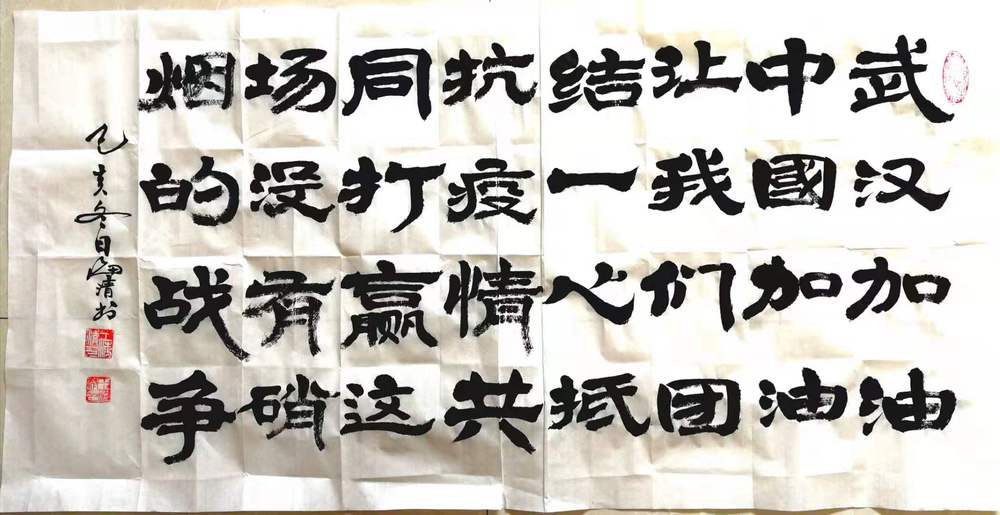 武汉加油
中國加油
让我们团
结一心抵
抗疫情共
同打赢这
场没有硝
烟的战争
己亥冬日